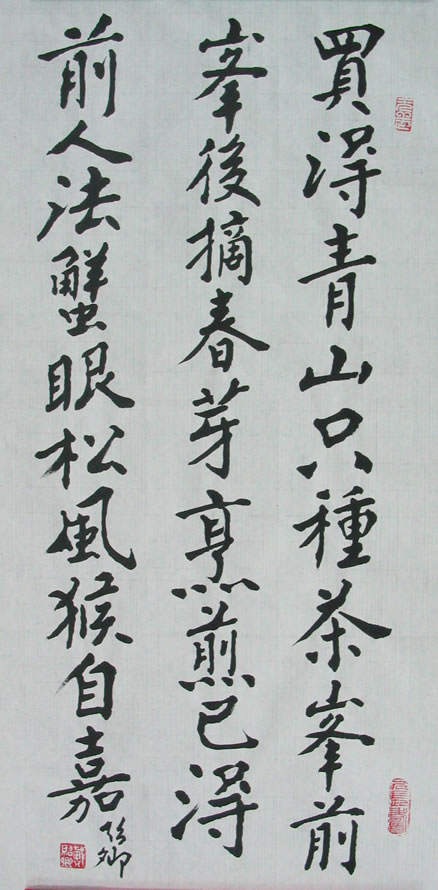 買得青山只種茶峯前
峯後摘春芽烹煎已得
前人法蟹眼松風猴自嘉